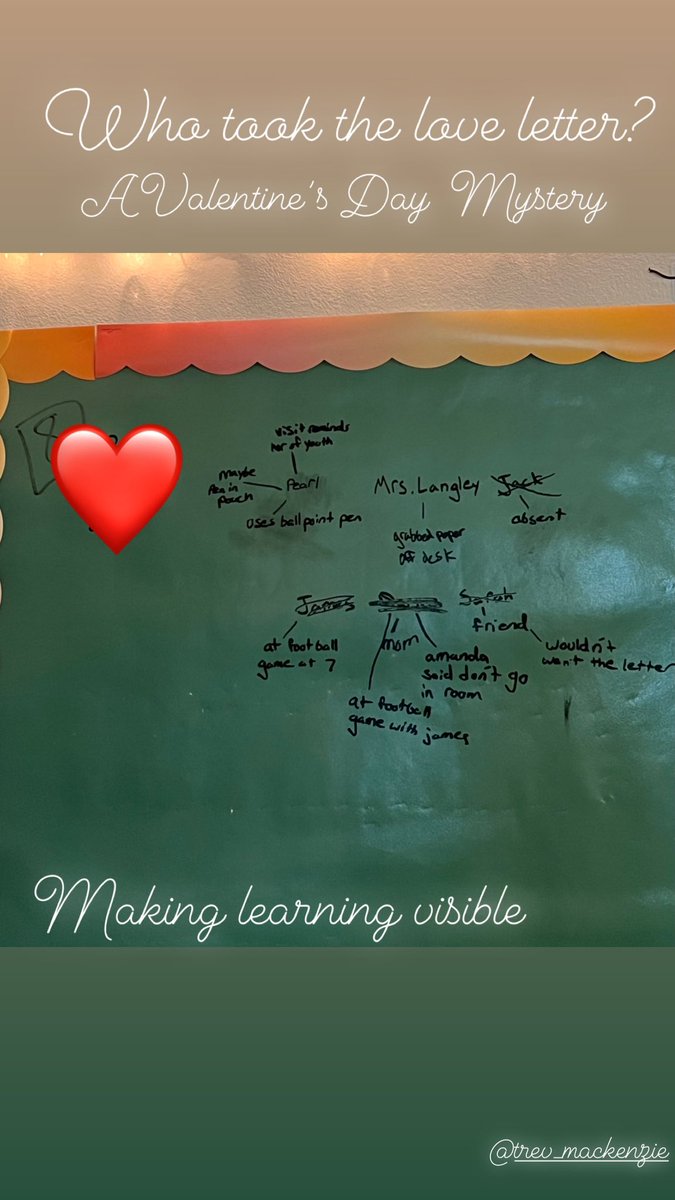 Who took the love letter?
A Valentine's Day Mystery
8
visit reminds
her of youth
maybe
Pen in
Pouch
Pearl
uses ball point pen
Mrs. Langley
grabbed paper
off desk
Jack
absent
James
at football
game at 7
mom
at football
game with james
amanda
said don't go
in room
Sarah
friend
wouldn't
want the letter
Making learning visible
@trev_mackenzie